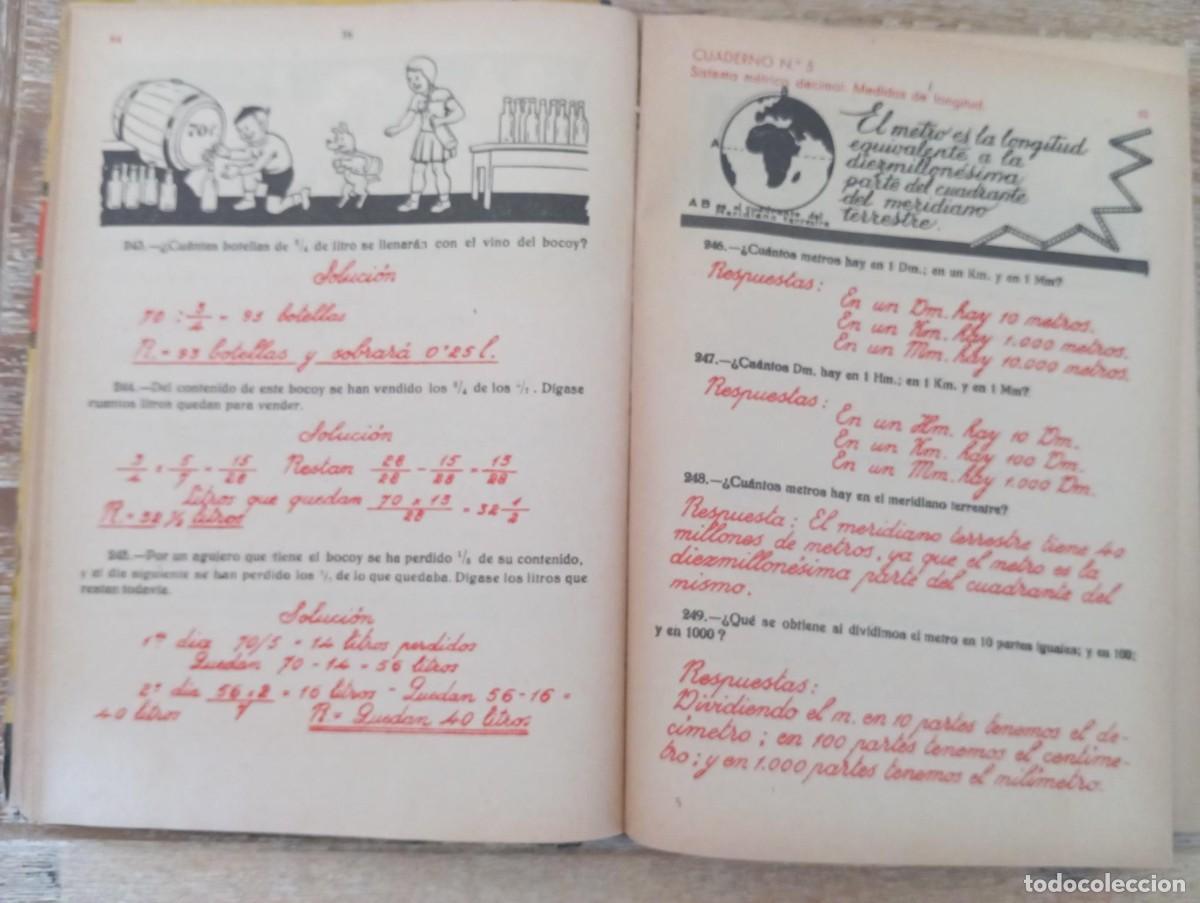 64
56
70 l
243.—¿Cuántas botellas de 3/4 de litro se llenarán con el vino del bocoy?
Solución
70 : 3/4 = 93 botellas
R. = 93 botellas y sobrará 0'25 l.
244.—Del contenido de este bocoy se han vendido los 3/4 de los 5/7. Dígase
cuantos litros quedan para vender.
Solución
3/4 × 5/7 = 15/28 Restan 28/28 - 15/28 = 13/28
Litros que quedan 70 x 13/28 = 32 1/2
R. = 32 ½ litros
245.—Por un agujero que tiene el bocoy se ha perdido 1/5 de su contenido,
y el día siguiente se han perdido los 2/7 de lo que quedaba. Dígase los litros que
restan todavía.
Solución
1er día 70/5 = 14 litros perdidos
Quedan 70 - 14 = 56 litros
2º día 56 x 2/7 = 16 litros - Quedan 56 - 16 =
40 litros R = Quedan 40 litros
CUADERNO N.º 5
Sistema métrico decimal. Medidas de longitud.
65
B
A
El metro es la longitud
equivalente a la
diezmillonésima
parte del cuadrante
del meridiano
terrestre.
A B es el cuadrante del
Meridiano terrestre
246.—¿Cuántos metros hay en 1 Dm.; en un Km. y en 1 Mm?
Respuestas:
En un Dm. hay 10 metros.
En un Km. hay 1.000 metros.
En un Mm. hay 10.000 metros.
247.—¿Cuántos Dm. hay en 1 Hm.; en 1 Km. y en 1 Mm?
Respuestas:
En un Hm. hay 10 Dm.
En un Km. hay 100 Dm.
En un Mm. hay 1.000 Dm.
248.—¿Cuántos metros hay en el meridiano terrestre?
Respuesta: El meridiano terrestre tiene 40
millones de metros, ya que el metro es la
diezmillonésima parte del cuadrante del
mismo.
249.—¿Qué se obtiene al dividimos el metro en 10 partes iguales; y en 100;
y en 1000?
Respuestas:
Dividiendo el m. en 10 partes tenemos el de-
címetro; en 100 partes tenemos el centíme-
tro; y en 1.000 partes tenemos el milímetro.
5
todocoleccion